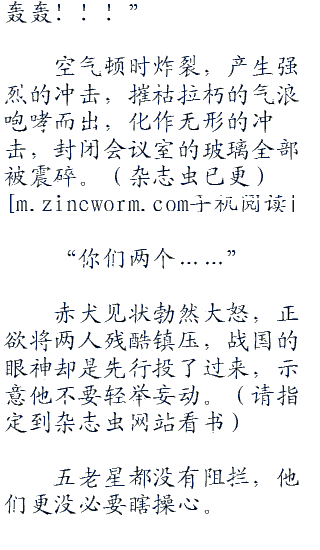 轰轰！！！”
空气顿时炸裂，产生强
烈的冲击，摧枯拉朽的气浪
咆哮而出，化作无形的冲
击，封闭会议室的玻璃全部
被震碎。（杂志虫已更）
[m.zincworm.com手机阅读i
“你们两个……”
赤犬见状勃然大怒，正
欲将两人残酷镇压，战国的
眼神却是先行投了过来，示
意他不要轻举妄动。（请指
定到杂志虫网站看书）
五老星都没有阻拦，他
们更没必要瞎操心。